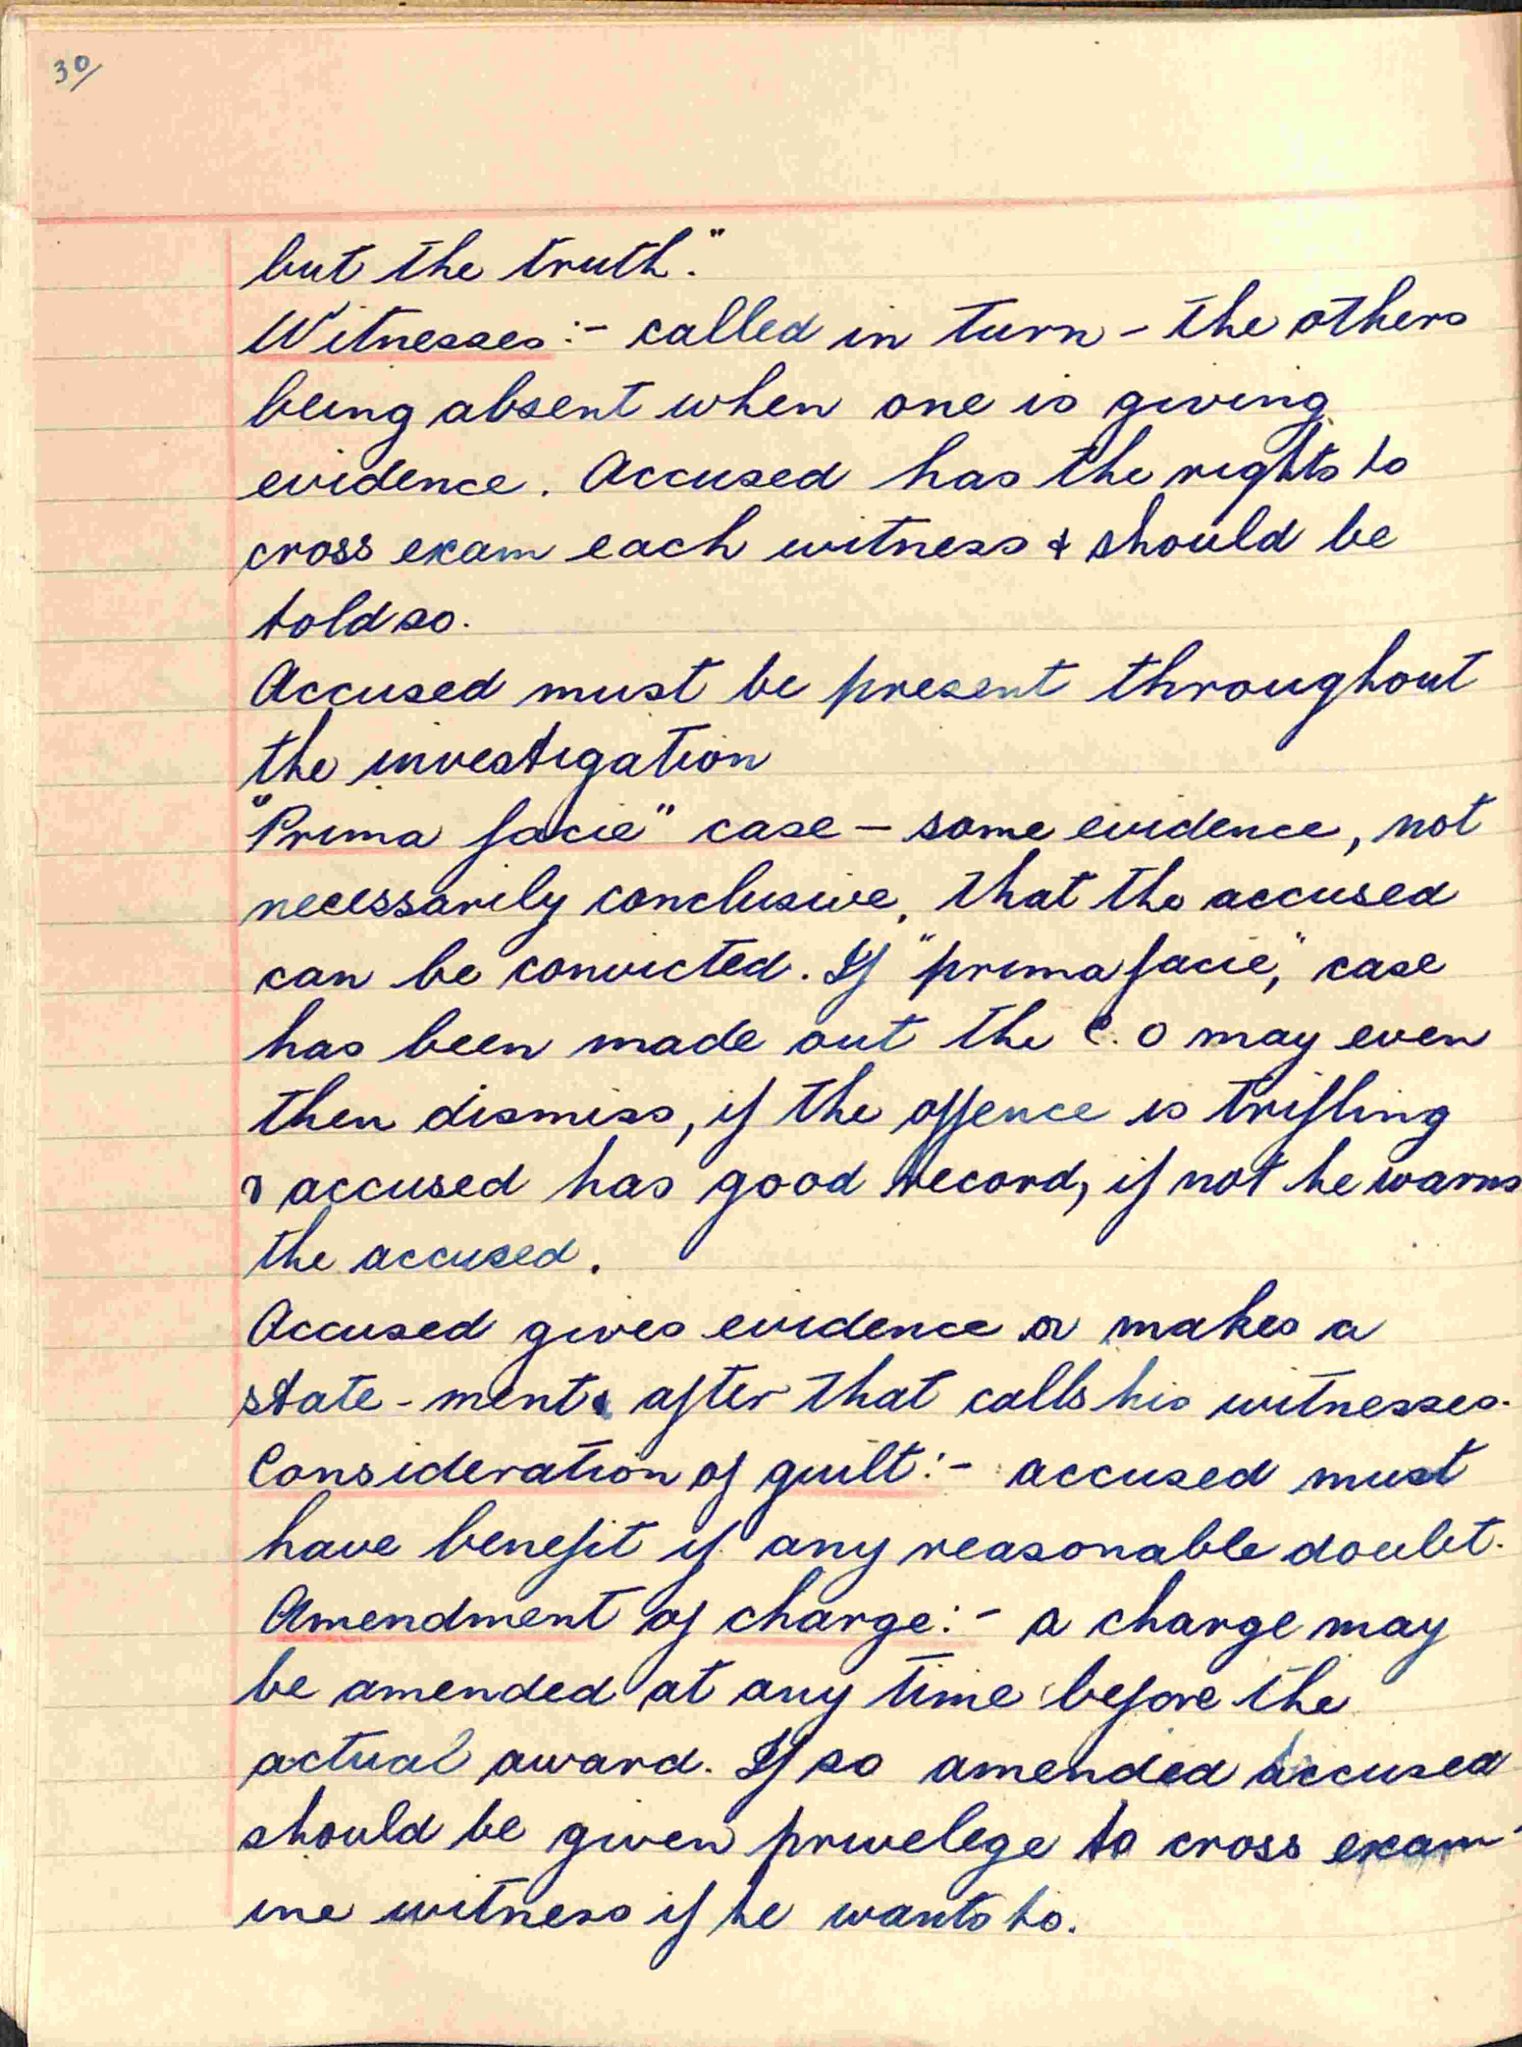 30/
but the truth."
Witnesses:- called in turn - the others
being absent when one is giving
evidence. Accused has the rights to
cross exam each witness & should be
told so.
Accused must be present throughout
the investigation
"Prima facie" case - some evidence, not
necessarily conclusive, that the accused
can be convicted. If "prima facie," case
has been made out the C.O may even
then dismiss, if the offence is trifling
& accused has good record, if not he warns
the accused.
Accused gives evidence or makes a
state-ment & after that calls his witnesses.
Consideration of guilt:- accused must
have benefit if any reasonable doubt.
Amendment of charge:- a charge may
be amended at any time before the
actual award. If so amended accused
should be given privelege to cross exam-
ine witness if he wants to.